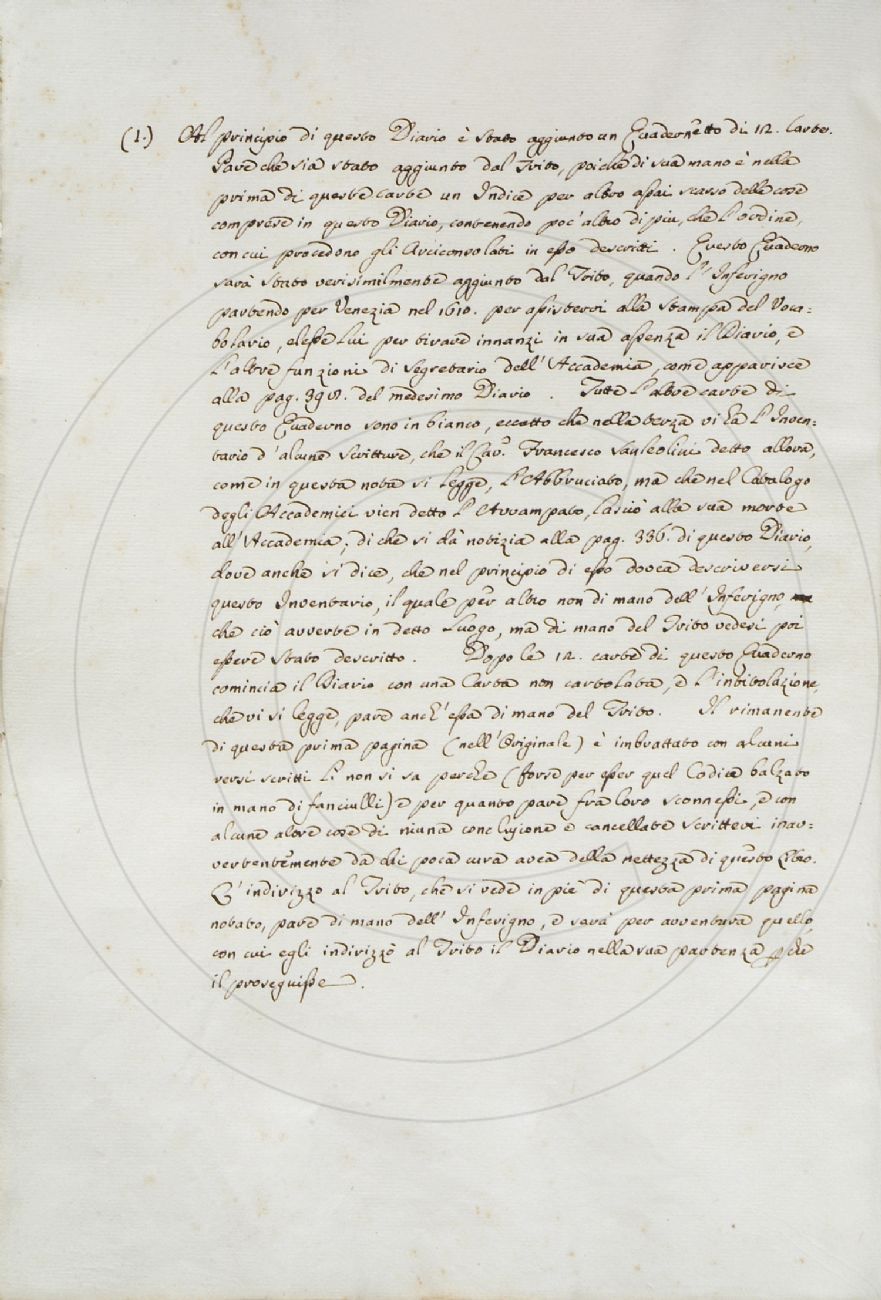 (1.) Al principio di questo Diario è stato aggiunto un Quadernetto di 12. Carte.
Pare che sia stato aggiunto dal Trito, poichè di sua mano è nella
prima di queste carte un Indice per altro assai scarso delle cose
comprese in questo Diario, contenendo poc'altro di più, che l'ordine,
con cui procedono gli Arciconsolati in esso descritti. Questo Quaderno
sarà stato verisimilmente aggiunto dal Trito, quando l'Inferigno
partendo per Venezia nel 1610. per assistervi alla stampa del Voca=
bolario, elesse lui per tirare innanzi in sua assenza il Diario, e
l'altre funzioni di Segretario dell'Accademia, come apparisce
alla pag. 398. del medesimo Diario. Tutte l'altre carte di
questo Quaderno sono in bianco, eccetto che nella terza vi ha l'Inven-
tario d'alcune Scritture, che il Cav.r Francesco Sanleolini detto allora,
come in questa nota si legge, l'Abbruciato, ma che nel Catalogo
degli Accademici vien detto l'Avvampato, lasciò alla sua morte
all'Accademia; di che si dà notizia alla pag. 336. di questo Diario,
dove anche si dice, che nel principio di esso dovea descriversi
questo Inventario, il quale per altro non di mano dell'Inferigno,
che ciò avverte in detto luogo, ma di mano del Trito vedesi poi
essere stato descritto. Dopo le 12. carte di questo Quaderno
comincia il Diario con una Carta non cartolata, e l'intitolazione,
che vi si legge, pare anch'essa di mano del Trito. Il rimanente
di questa prima pagina (nell'Originale) è imbrattato con alcuni
versi scritti lì non si sa perchè (forse per esser quel Codice balzato
in mano di fanciulli) e per quanto pare fra loro sconnessi, e con
alcune altre cose di niuna conclusione e cancellate scrittevi inav=
vertentemente da chi poca cura avea della nettezza di questo Libro.
L'indirizzo al Trito, che si vede in piè di questa prima pagina
notato, pare di mano dell'Inferigno, e sarà per avventura quello,
con cui egli indirizzò al Trito il Diario nella sua partenza pchè
il proseguisse.